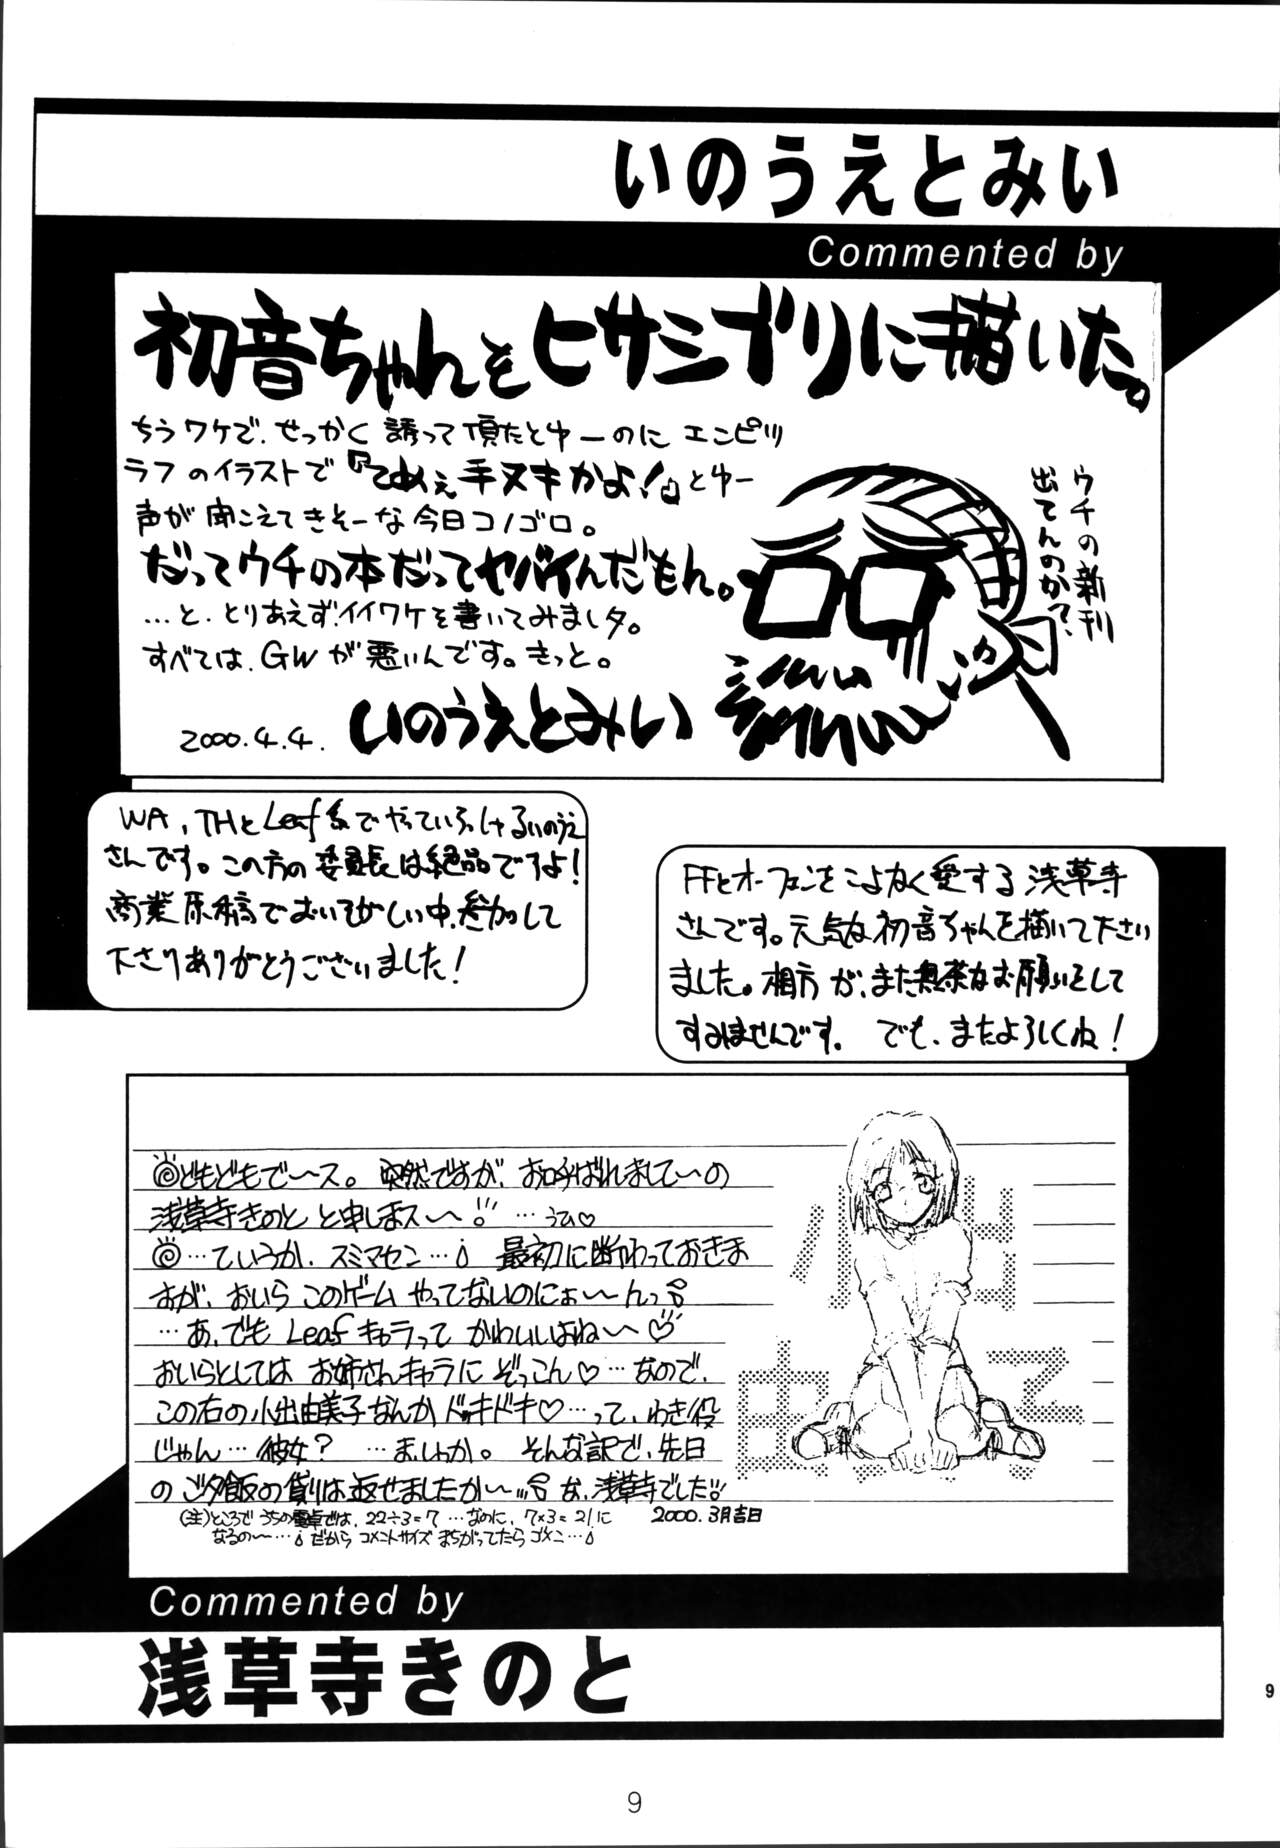 いのうえとみい
Commented by
初音ちゃんをヒサシブリに描いた。
ちうワケで、せっかく誘って頂たとゆーのに エンピツ
ラフのイラストで『てめぇ手ヌキかよ!』とゆー
声が聞こえてきそーな今日コノゴロ。
だってウチの本だってヤバイんだもん。
…と、とりあえず、イイワケを書いてみましタ。
すべては、GWが悪いんです。きっと。
2000.4.4. いのうえとみい
ウチの新刊
出てんのか?
WA、THとLeaf系でやっていらっしゃるいのうえ
さんです。この方の委員長は絶品ですよ!
商業原稿でおいそがしい中、参加して
下さりありがとうございました!
FFとオーフェンをこよなく愛する浅草寺
さんです。元気な初音ちゃんを描いて下さい
ました。相方が、また無茶なお願いをして
すみませんです。 でも、またよろしくね!
どもどもで〜ス。 突然ですが、お呼ばれしまして〜の
浅草寺きのと と申しまス〜!! …うひ♡
…ていうか、スミマセン… 最初に断わっておきま
すが、おいら このゲーム やってないのにぉ〜んっ
…あ、でも Leafキャラって かわいいよね〜♡
おいらとしては お姉さんキャラに ぞっこん♡…なので、
この右の小出由美子なんか ドッキドキ♡…って、わき役
じゃん… 彼女? …ま、しゃか。 そんな訳で、先日
のご夕飯の貸りは返せましたか〜… な、浅草寺でした!!
(注)ところで うちの電卓では、22÷3=7 …なのに、7×3=21に
なるの〜… だから コメントサイズ まちがってたら ゴメン…
2000.3月吉日
小出
由美子
Commented by
浅草寺きのと
9
9